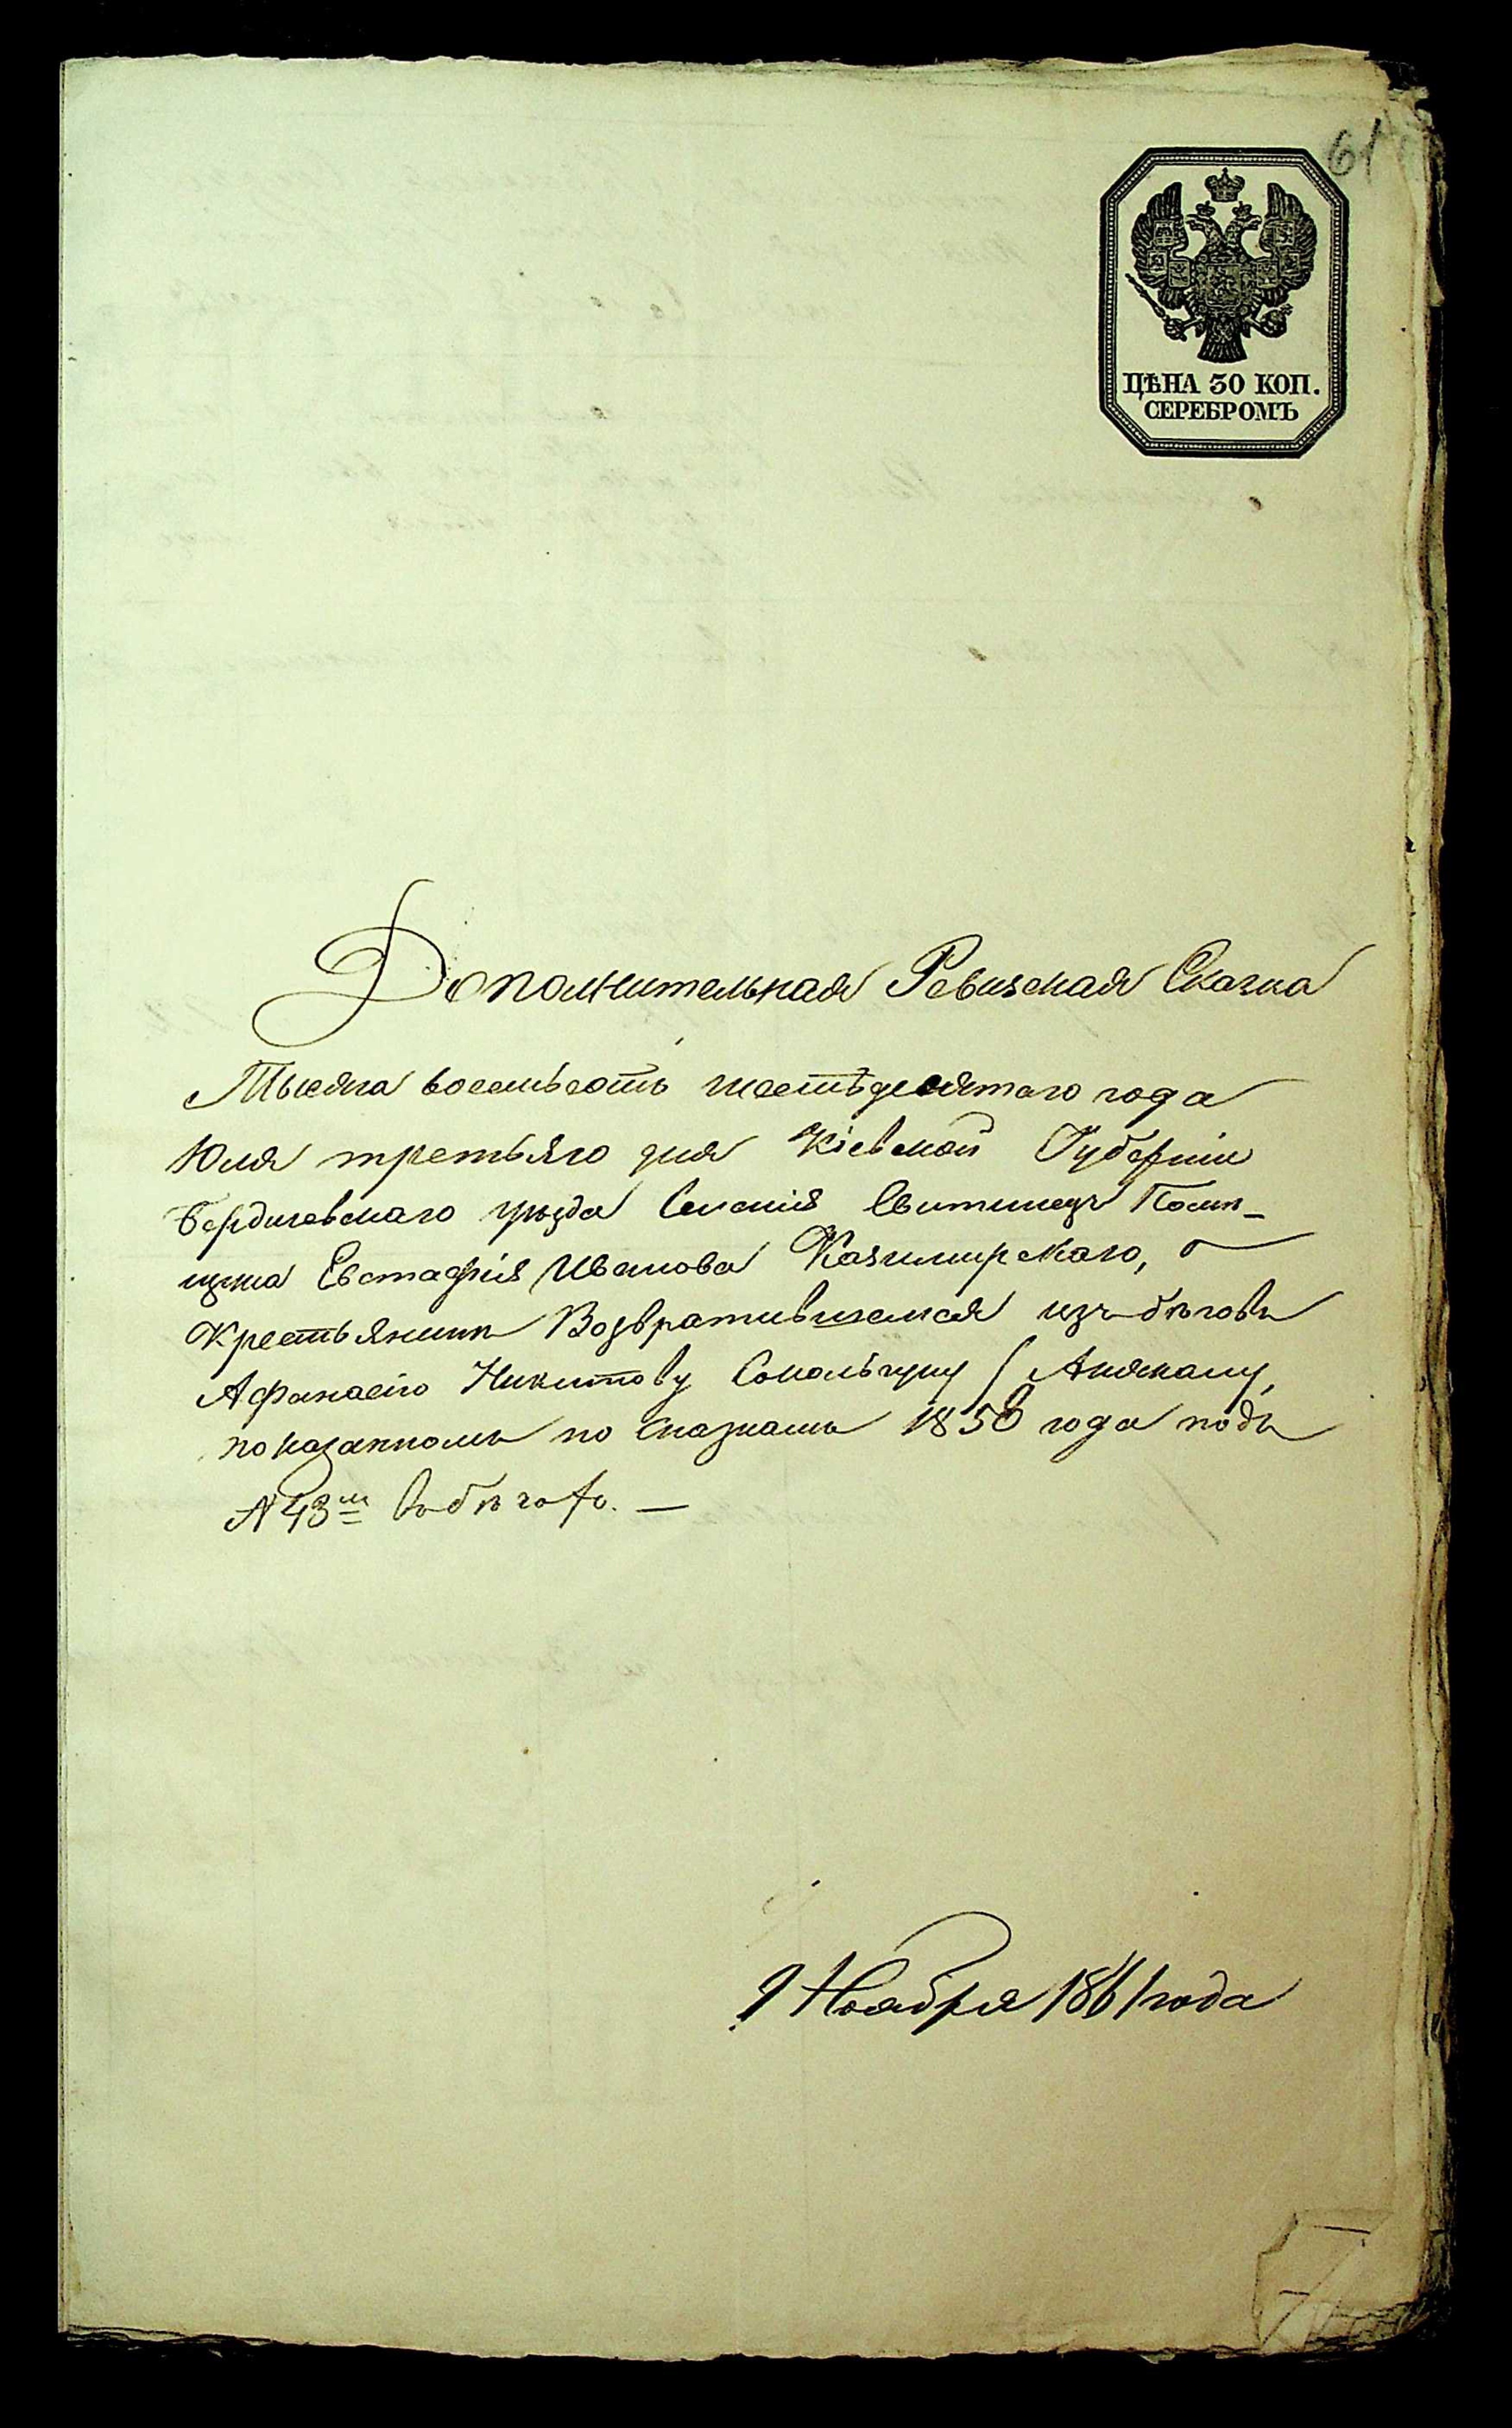 61
ЦѢНА 30 КОП.
СЕРЕБРОМЪ
Дополнительная Ревизская Сказка
Тысяча восемьсотъ шестьдесятаго года
Юля третьяго дня Кіевской Губерніи
Бердичевскаго уѣзда Селенія Свитинецъ Помѣ-
щика Евстафія Иванова Казимирскаго, о
Крестьянинѣ Возвратившемся изъ бѣговъ
Афанасію Никитову Сокальчуку
показанномъ по сказкамъ 1858 года подъ
N 43м въ бѣгахъ. —
9 Ноября 1861 года